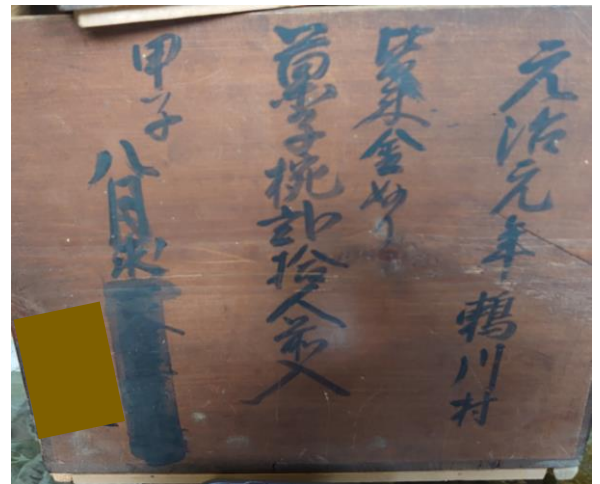 元治元年 川村
金ぬり
菓子椀弐拾人前入
甲子
八月求